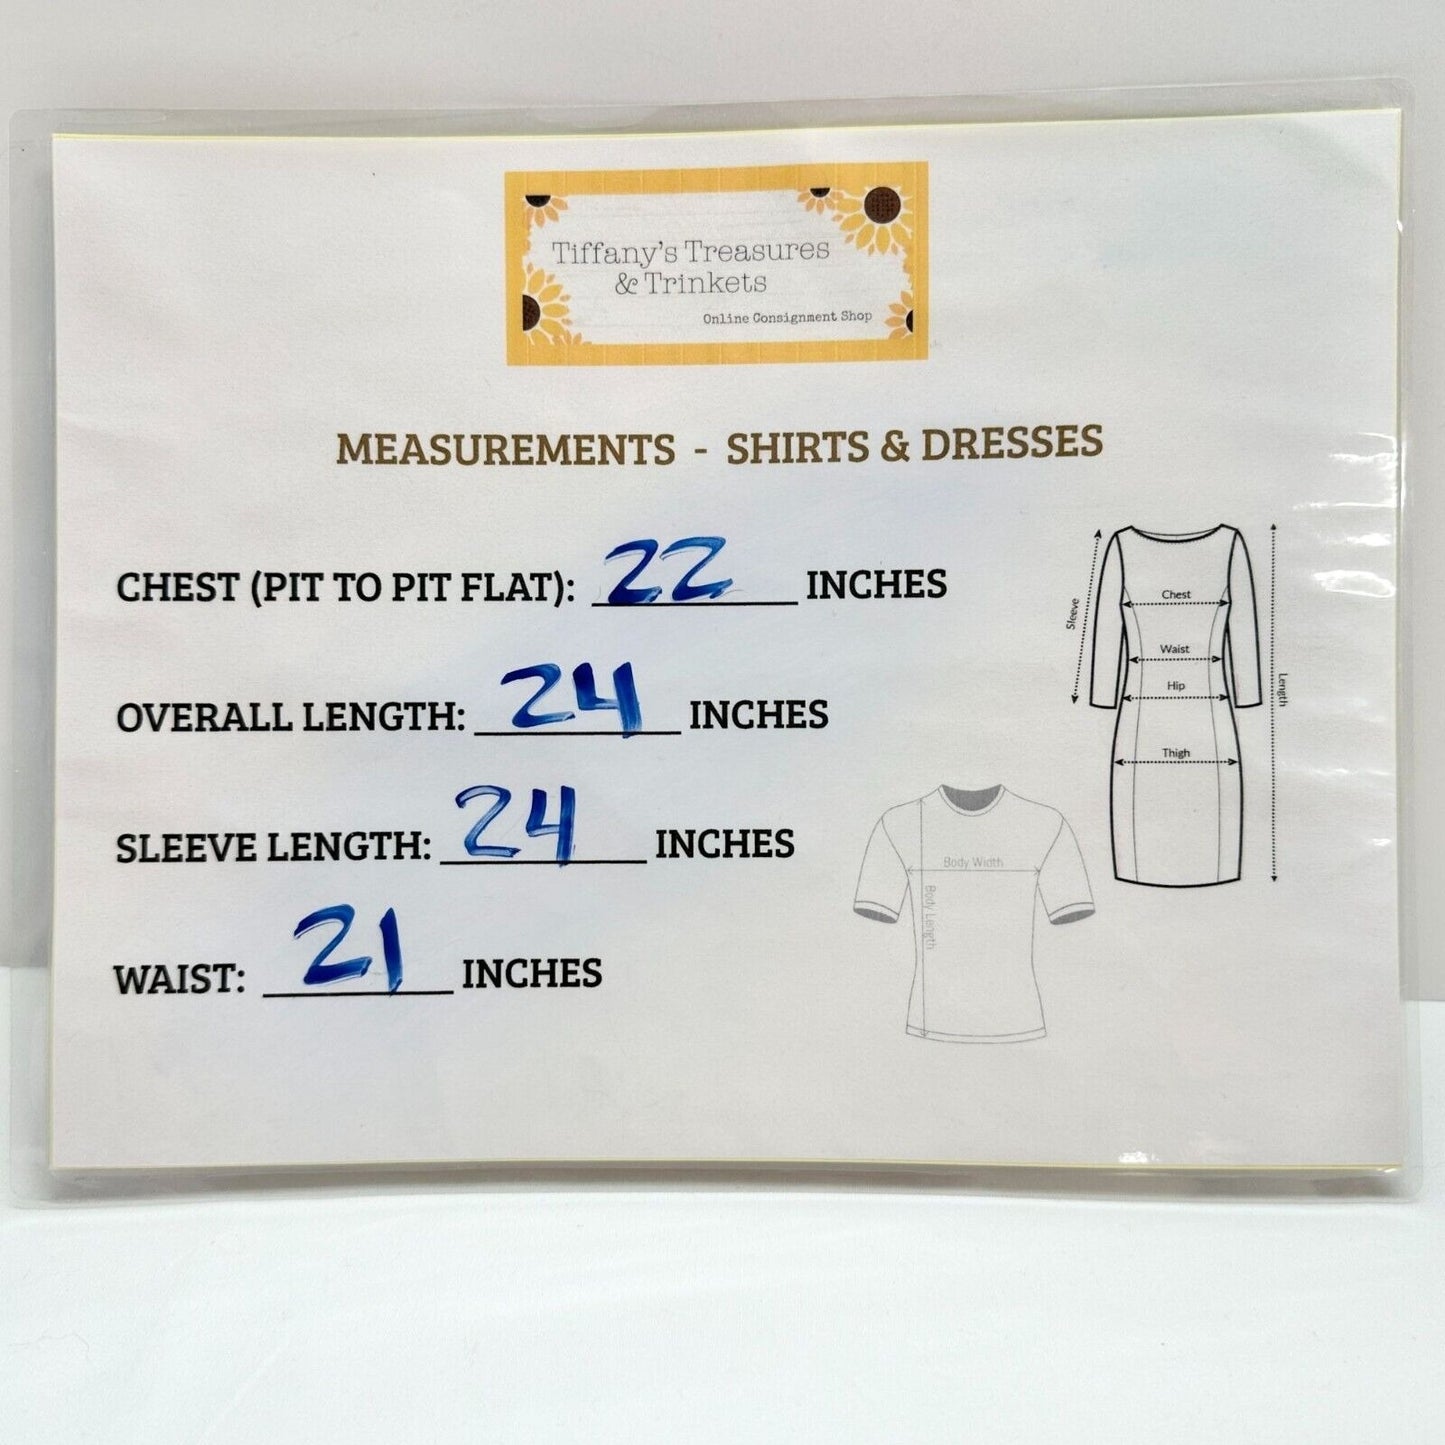 Tiffany's Treasures
& Trinkets
Online Consignment Shop
MEASUREMENTS - SHIRTS & DRESSES
CHEST (PIT TO PIT FLAT): 22 INCHES
OVERALL LENGTH: 24 INCHES
SLEEVE LENGTH: 24 INCHES
WAIST: 21 INCHES
Sleeve
Chest
Waist
Hip
Thigh
Length
Body Width
Body Length